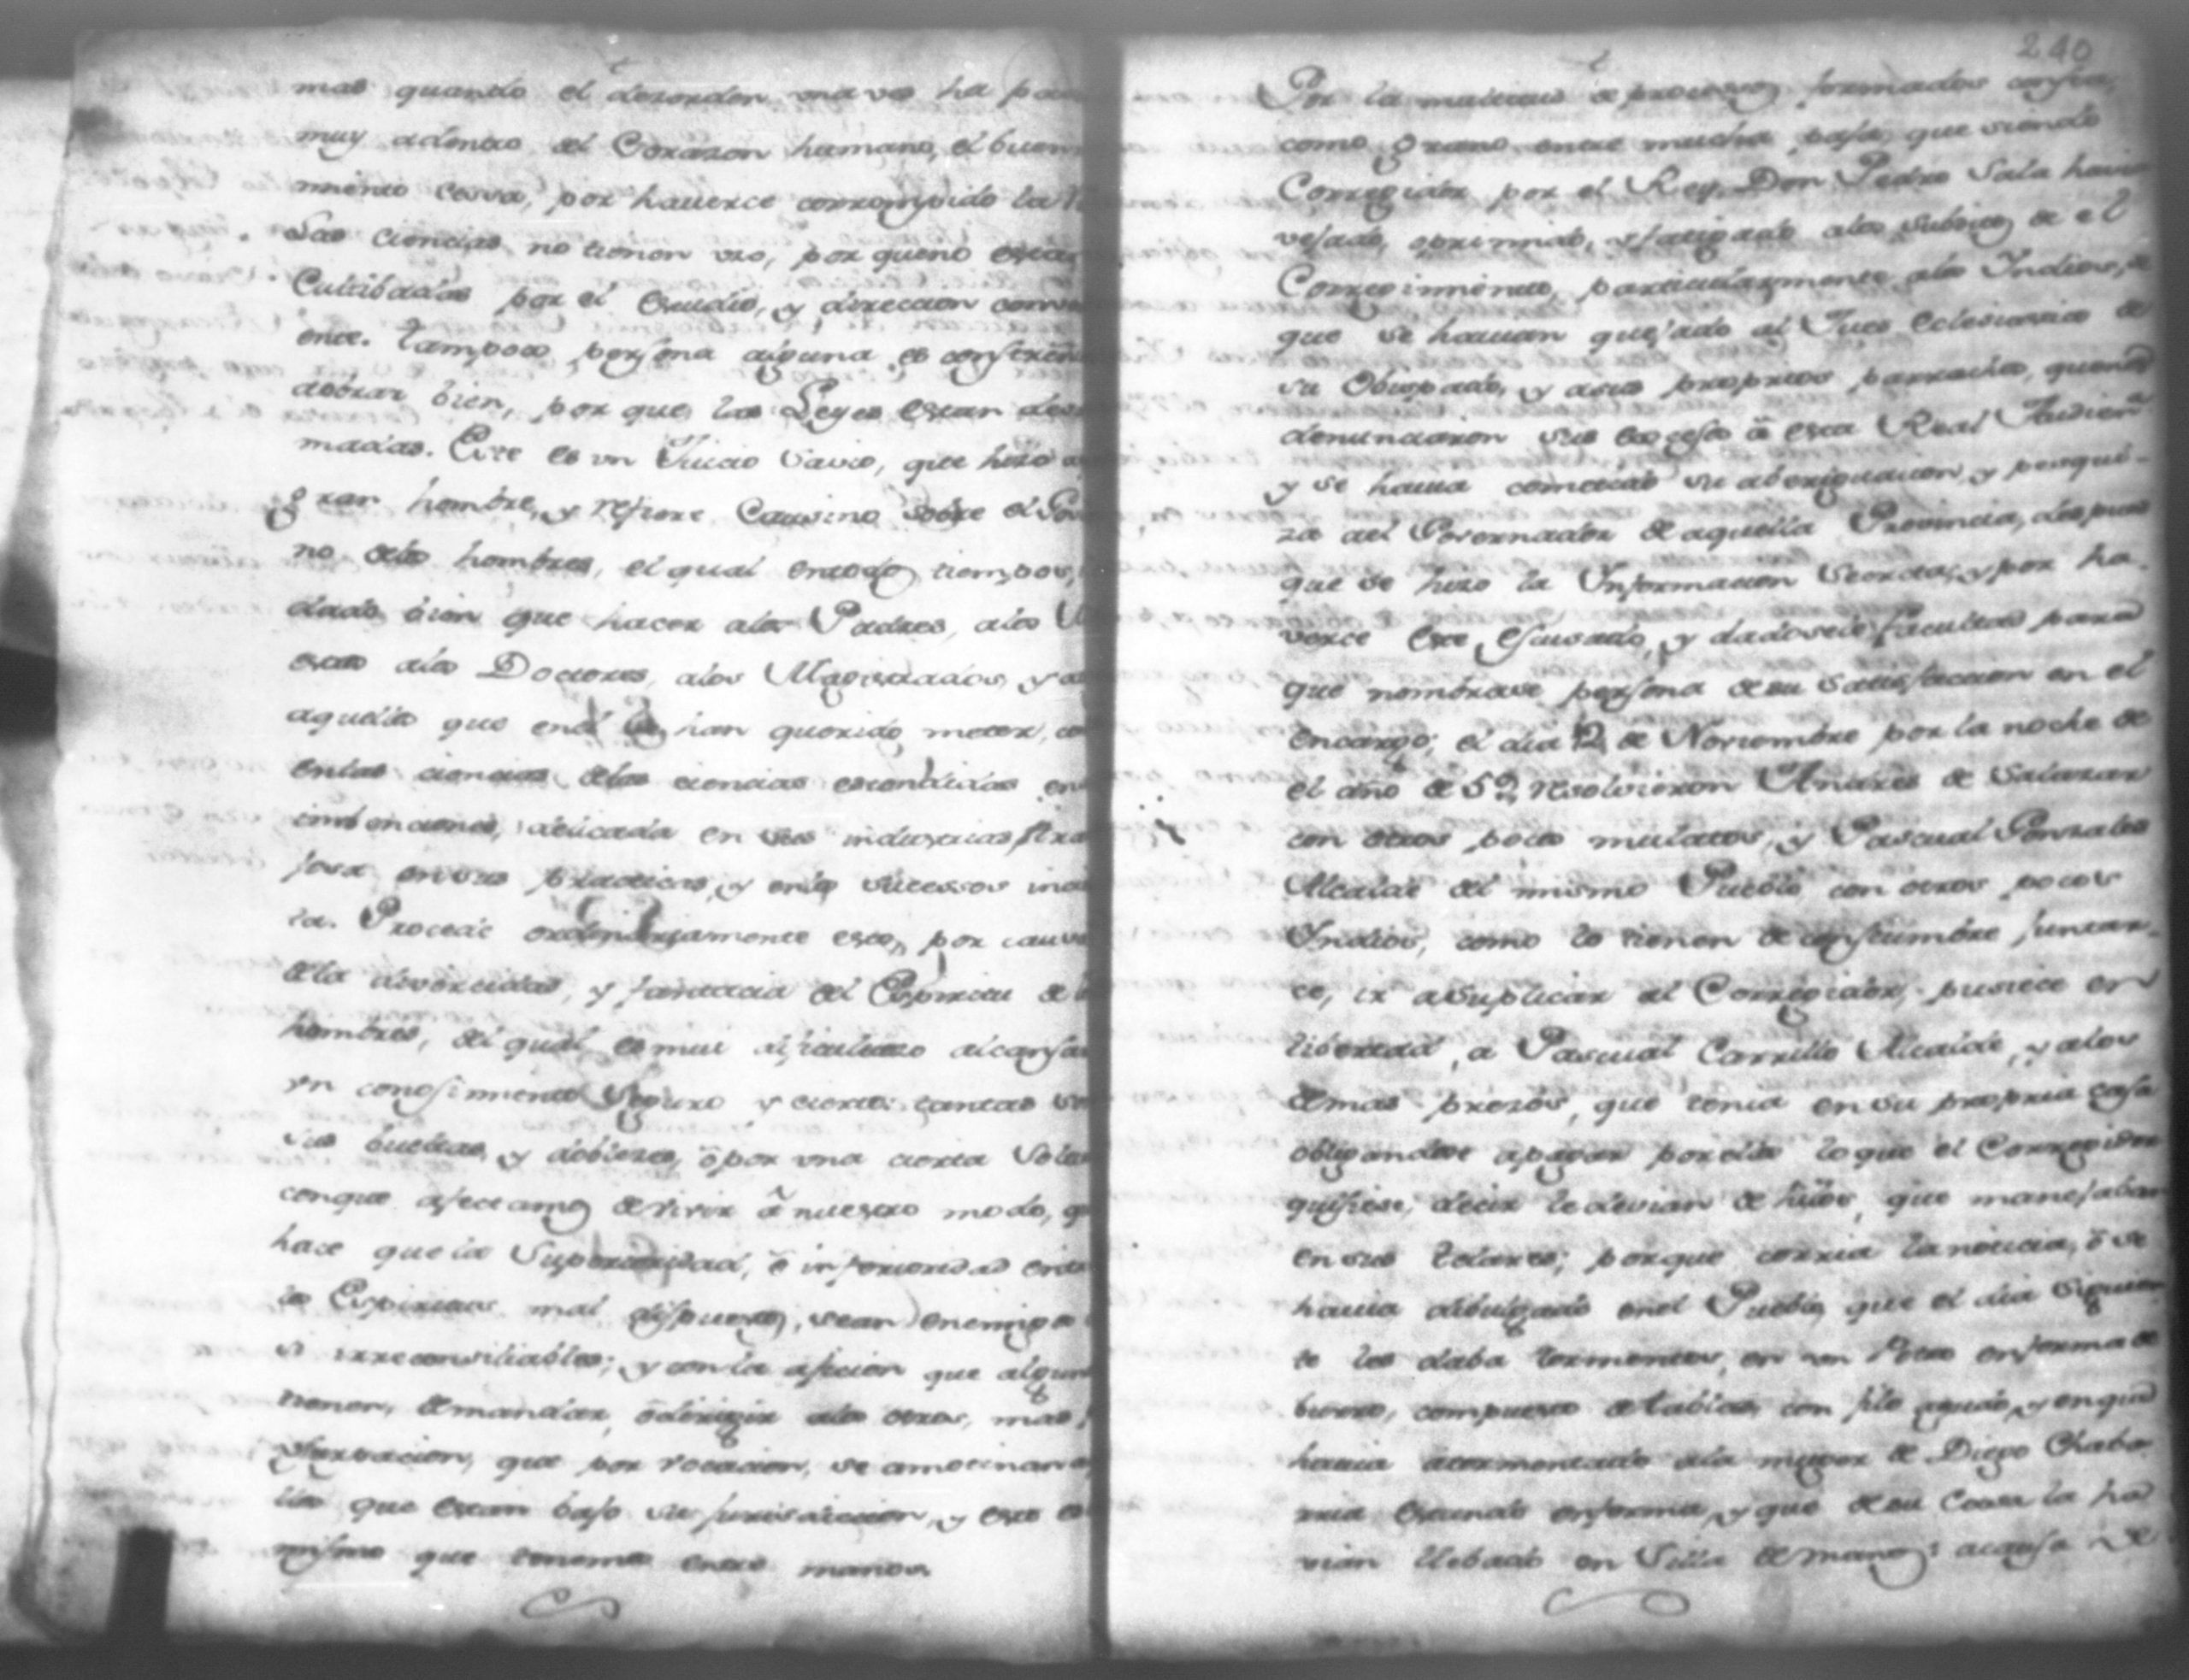 mas quando el desorden una ves ha pa
muy adentro del Corazon humano, el buen
miento cessa, por hauerce corrompido la
Las ciencias no tienen uso, por que no estan
Cultibadas por el estudio, y direccion conv
ente. tampoco persona alguna es constreñ
aobrar bien, por que las Leyes estan des
madas. Este es un Juicio Savio, que hizo
gran hombre, y refiere Causino sobre el Gov
no delos hombres, el qual entodos tiempos,
dado bien que hacer alos Padres, alos
estros alos Doctores, alos Magistrados, y a
aquellos que en el se han querido meter, co
enlas ciencias delas ciencias escondidas en
imbenciones, delicada en sus industrias
josa ensus practicas, y enlos sucessos inci
ta. Procede ordinariamente esto, por causa
dela diversidad, y fantacia del Espiritu de
hombres, del qual, es mui dificultozo alcansar
un conosimiento Seguro y cierto: tantas so
sus bueltas, y dobleses, ô por una cierta
conque afectamos devivir â nuestro modo, q
hace que la Superioridad, ô inferioridad en
los Espiritus mal dispuestos, sean enemigos
s irreconsiliables; y con la aficion que algun
tienen, demandar, ôdirigir alos otros, mas
usurpacion, que por vocacion, se amotinan
llos que estan bajo su jurisdiccion, y esto es
mismo que tenemos entre manos.
240
Por la multitud de processos formados consta,
como grano entre mucha paja, que siendo
Corregidor por el Rey, Don Pedro Sala havia
vejado, oprimido, y fatigado alos subditos de el
Corregimiento, particularmente alos Indios, de
que se hauian quejado al Jues eclesiastico de
su Obispado, y asus proprios parrochos, quienes
denunciaron sus excesos â esta Real Audien.ª
y se hauia cometido su aberiguacion, y pesqui-
za del Governador de aquella Provincia, despues
que se hizo la Informacion Secreta, y por ha-
verce este escusado, y dadosele facultad para
que nombrase persona desu satisfaccion en el
encargo; el dia 12 de Noviembre por la noche de
el año de 52, resolvieron Andres de Salazar
con otros pocos mulatos, y Pascual Gonzales
Alcalde del mismo Pueblo con otros pocos
Indios, como lo tienen de constumbre juntar-
ce, ir asuplicar al Corregidor, pusiece en
libertad, a Pascual Carrillo Alcalde, y alos
demas prezos, que tenia en su propria casa
obligandoles apagar por ellos lo que el Corregidor
quisiese, decir le devian de hilos, que manejaban
en sus telares; porque corria la noticia, ô se
hauia dibulgado enel Pueblo, que el dia siguien
te les daba tormentos, en un Potro enforma de
burro, compuesto detablas, con filo agudo, y enque
hauia atormentado ala muger de Diego Chaba-
rria estando enferma, y que desu Casa la ha
vian llebado en Silla demanos: acausa de